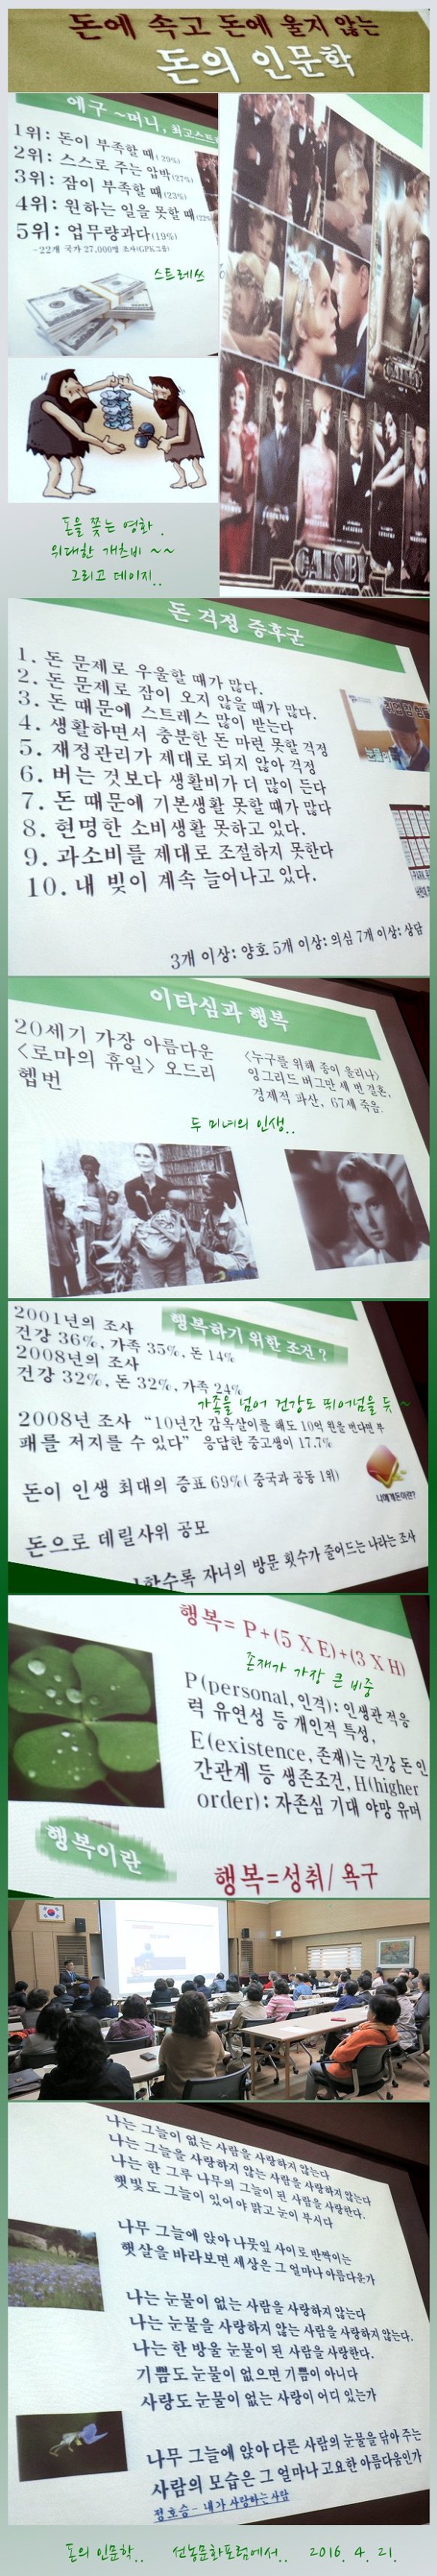 돈에 속고 돈에 울지 않는
돈의 인문학
에구 ~머니, 최고스트
1위: 돈이 부족할 때 (29%)
2위: 스스로 주는 압박(27%)
3위: 잠이 부족할 때(23%)
4위: 원하는 일을 못할 때(22%
5위: 업무량과다(19%)
-22개 국가 27,000명 조사(GPK그룹)
스트레쓰
GATSBY
돈을 쫓는 영화.
위대한 개츠비 ~~
그리고 데이지..
돈 걱정 증후군
1. 돈 문제로 우울할 때가 많다.
2. 돈 문제로 잠이 오지 않을 때가 많다.
3. 돈 때문에 스트레스 많이 받는다
4. 생활하면서 충분한 돈 마련 못할 걱정
5. 재정관리가 제대로 되지 않아 걱정
6. 버는 것보다 생활비가 더 많이 든다
7. 돈 때문에 기본생활 못할 때가 많다
8. 현명한 소비생활 못하고 있다.
9. 과소비를 제대로 조절하지 못한다
10. 내 빚이 계속 늘어나고 있다.
3개 이상: 양호 5개 이상: 의심 7개 이상: 상담
이타심과 행복
20세기 가장 아름다운
<로마의 휴일> 오드리
헵번
<누구를 위해 종이 울리나>
잉그리드 버그만 세 번 결혼,
경제적 파산, 67세 죽음.
두 미녀의 인생..
행복하기 위한 조건?
2001년의 조사
건강 36%, 가족 35%, 돈 14%
2008년의 조사
건강 32%, 돈 32%, 가족 24%
가족을 넘어 건강도 뛰어넘을 듯 ~
2008년 조사 “10년간 감옥살이를 해도 10억 원을 번다면 부
패를 저지를 수 있다” 응답한 중고생이 17.7%
돈이 인생 최대의 증표 69%( 중국과 공동 1위)
나에게 돈이란?
돈으로 데릴사위 공모
할수록 자녀의 방문 횟수가 줄어드는 나라는 조사
행복= P+(5 X E)+(3 X H)
존재가 가장 큰 비중
P(personal, 인격): 인생관 적응
력 유연성 등 개인적 특성,
E(existence, 존재)는 건강 돈 인
간관계 등 생존조건, H(higher
order): 자존심 기대 야망 유머
행복이란
행복=성취/ 욕구
나는 그늘이 없는 사람을 사랑하지 않는다
나는 그늘을 사랑하지 않는 사람을 사랑하지 않는다
나는 한 그루 나무의 그늘이 된 사람을 사랑한다.
햇빛도 그늘이 있어야 맑고 눈이 부시다
나무 그늘에 앉아 나뭇잎 사이로 반짝이는
햇살을 바라보면 세상은 그 얼마나 아름다운가
나는 눈물이 없는 사람을 사랑하지 않는다
나는 눈물을 사랑하지 않는 사람을 사랑하지 않는다.
나는 한 방울 눈물이 된 사람을 사랑한다.
기쁨도 눈물이 없으면 기쁨이 아니다
사랑도 눈물이 없는 사랑이 어디 있는가
나무 그늘에 앉아 다른 사람의 눈물을 닦아 주는
사람의 모습은 그 얼마나 고요한 아름다움인가
정호승- 내가 사랑하는 사람
돈의 인문학.. 선농문화포럼에서.. 2016. 4. 21.